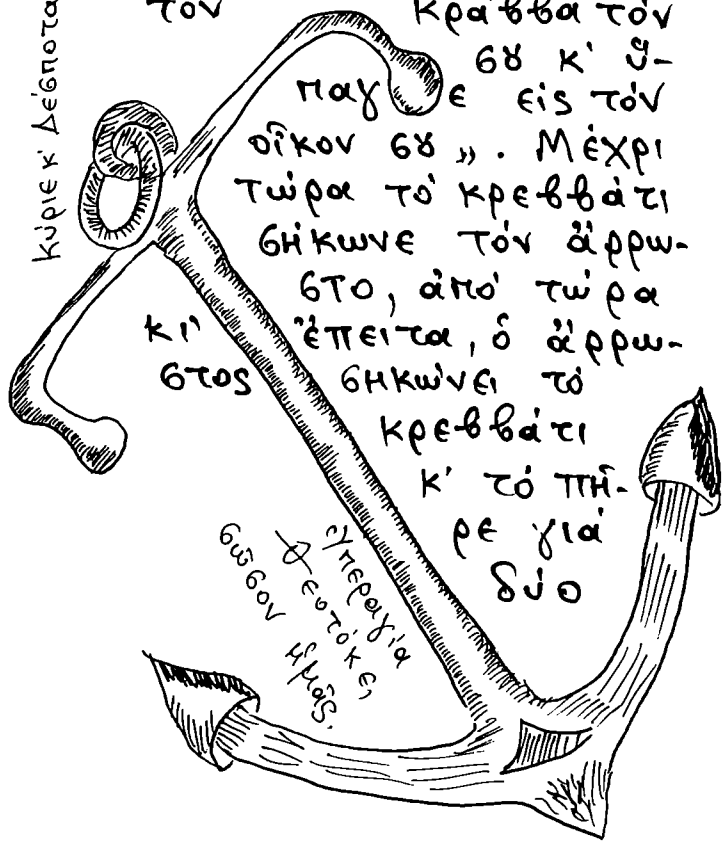 Κύριε κ' Δέσποτα
τόν κράββατόν
σȣ κ' ὕ-
παγε εἰς τόν
οἶκον σȣ ». Μέχρι
τώρα τό κρεββάτι
σήκωνε τόν ἄρρω-
στο, ἀπό τώρα
κι' ἔπειτα, ὁ ἄρρω-
στος σηκώνει τό
κρεββάτι
κ' τό πῆ-
ρε γιά
δύο
Ὑπεραγία
Θεοτόκε,
σῶσον ἡμᾶς.